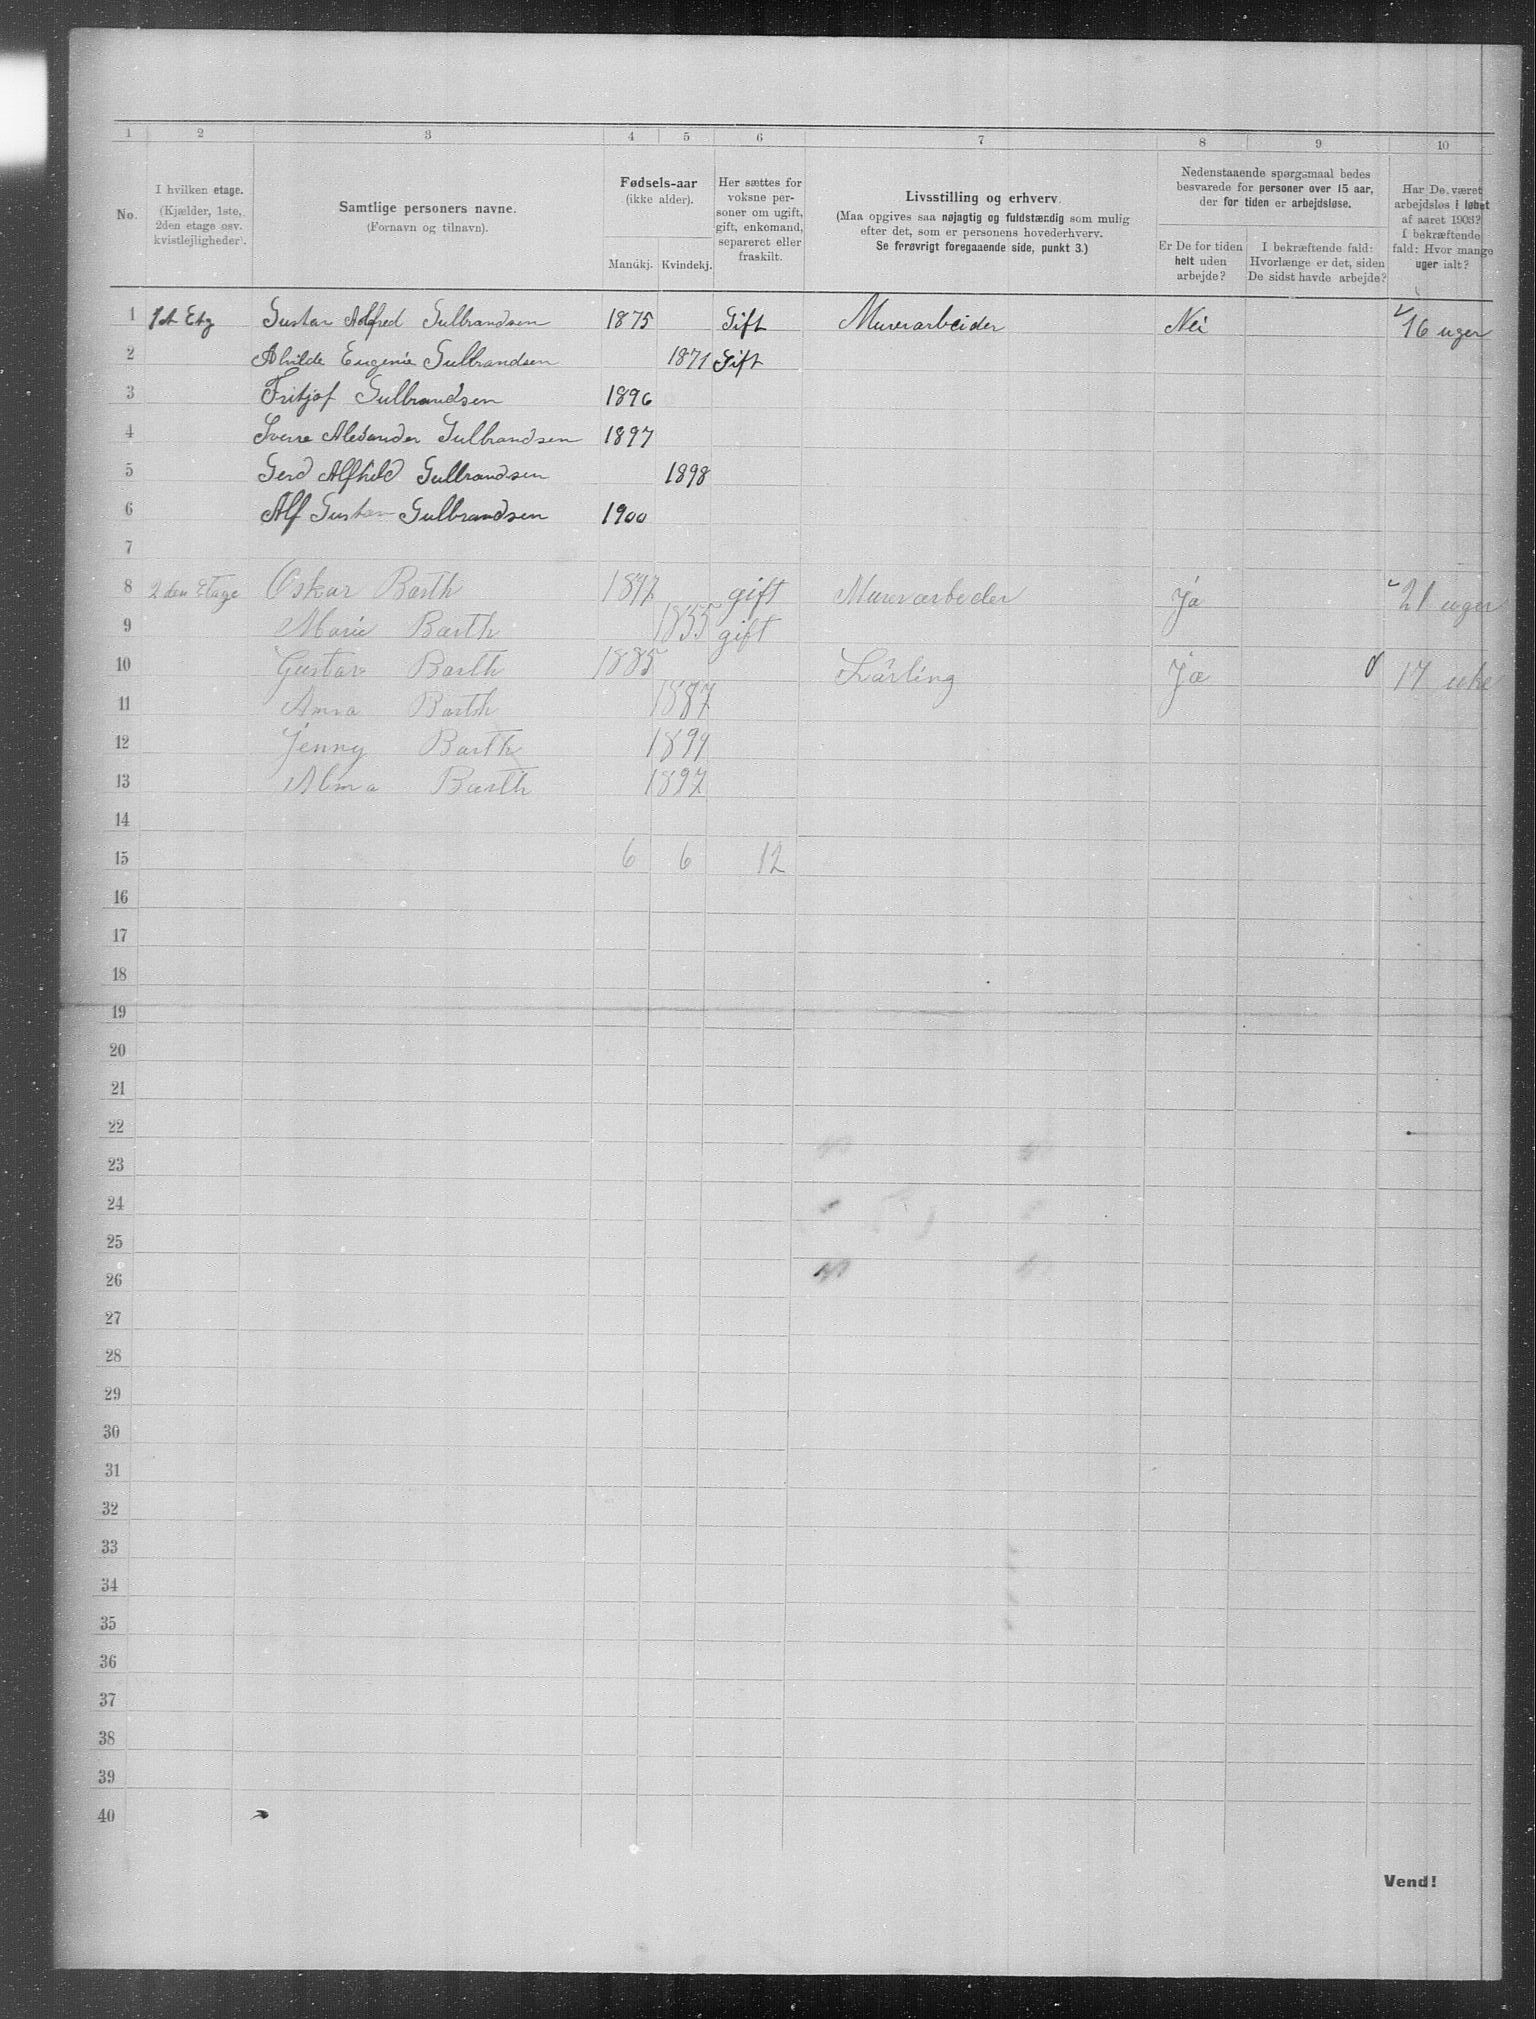 1 2 3 4 5 6 7 8 9 10
No.
I hvilken etage.
(Kjælder, 1ste,
2den etage osv.
kvistlejligheder).
Samtlige personers navne.
(Fornavn og tilnavn).
Fødsels-aar
(ikke alder).
Mandkj. Kvindekj.
Her sættes for
voksne per-
soner om ugift,
gift, enkemand,
separeret eller
fraskilt.
Livsstilling og erhverv.
(Maa opgives saa nøjagtig og fuldstændig som mulig
efter det, som er personens hovederhverv.
Se forøvrigt foregaaende side, punkt 3.)
Nedenstaaende spørgsmaal bedes
besvarede for personer over 15 aar,
der for tiden er arbejdsløse.
Er De for tiden
helt uden
arbejde?
I bekræftende fald:
Hvorlænge er det, siden
De sidst havde arbejde?
Har De været
arbejdsløs i løbet
af aaret 1903?
I bekræftende
fald: Hvor mange
uger ialt?
1 1st Etg Gustav Alfred Gulbrandsen 1875 Gift Murerarbeider Nei 16 uger
2 Alvilde Eugenie Gulbrandsen 1871 Gift
3 Fritjof Gulbrandsen 1896
4 Sverre Alexander Gulbrandsen 1897
5 Gerd Alfhild Gulbrandsen 1898
6 Alf Gustav Gulbrandsen 1900
7
8 2den Etage Oskar Barth gift Murerarbeder Ja 21 uger
9 Marie Barth 1855 gift
10 Gustav Barth 1885 Lärling Ja 17 uke
11 Anna Barth 1887
12 Jenny Barth 1891
13 Alma Barth 1897
14
15 6 6 12
16
17
18
19
20
21
22
23
24
25
26
27
28
29
30
31
32
33
34
35
36
37
38
39
40
Vend!